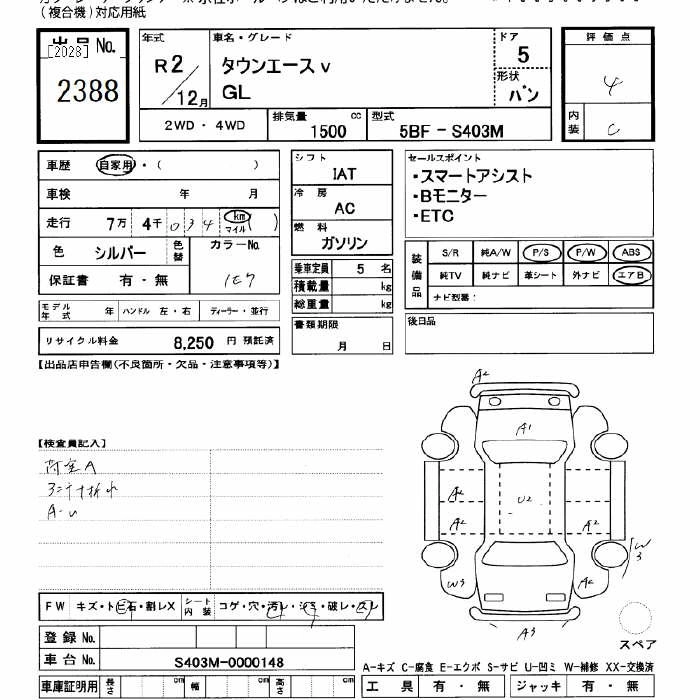 (複合機)対応用紙
出品 No.
[2028]
2388
年式
R2/12月
車名・グレード
タウンエースv
GL
ドア
5
形状
バン
評価点
4
内装
C
2WD・4WD
排気量 1500 cc
型式 5BF-S403M
車歴 自家用・( )
車検 年 月
走行 7万 4千 0 3 4 km マイル ( )
色 シルバー 色替 カラーNo. 1E7
保証書 有・無
シフト
IAT
冷房
AC
燃料
ガソリン
乗車定員 5 名
積載量 kg
総重量 kg
セールスポイント
・スマートアシスト
・Bモニター
・ETC
装備品
S/R 純A/W P/S P/W ABS
純TV 純ナビ 革シート 外ナビ エアB
ナビ型番:
モデル年式 年 ハンドル 左・右 ディーラー・並行
リサイクル料金 8,250 円 預託済
書類期限
月 日
後日品
【出品店申告欄(不良箇所・欠品・注意事項等)】
【検査員記入】
荷室A
A-U
A2
A1
A2
U2
A2
A2
W3
A2
W3
A3
スペア
FW キズ・トビ石・割レX シート内装 コゲ・穴・汚レ・シミ・破レ・スレ
登録 No.
車台 No. S403M-0000148
車庫証明用 長さ cm 幅 cm 高さ cm
A-キズ C-腐食 E-エクボ S-サビ U-凹ミ W-補修 XX-交換済
工具 有・無 ジャッキ 有・無